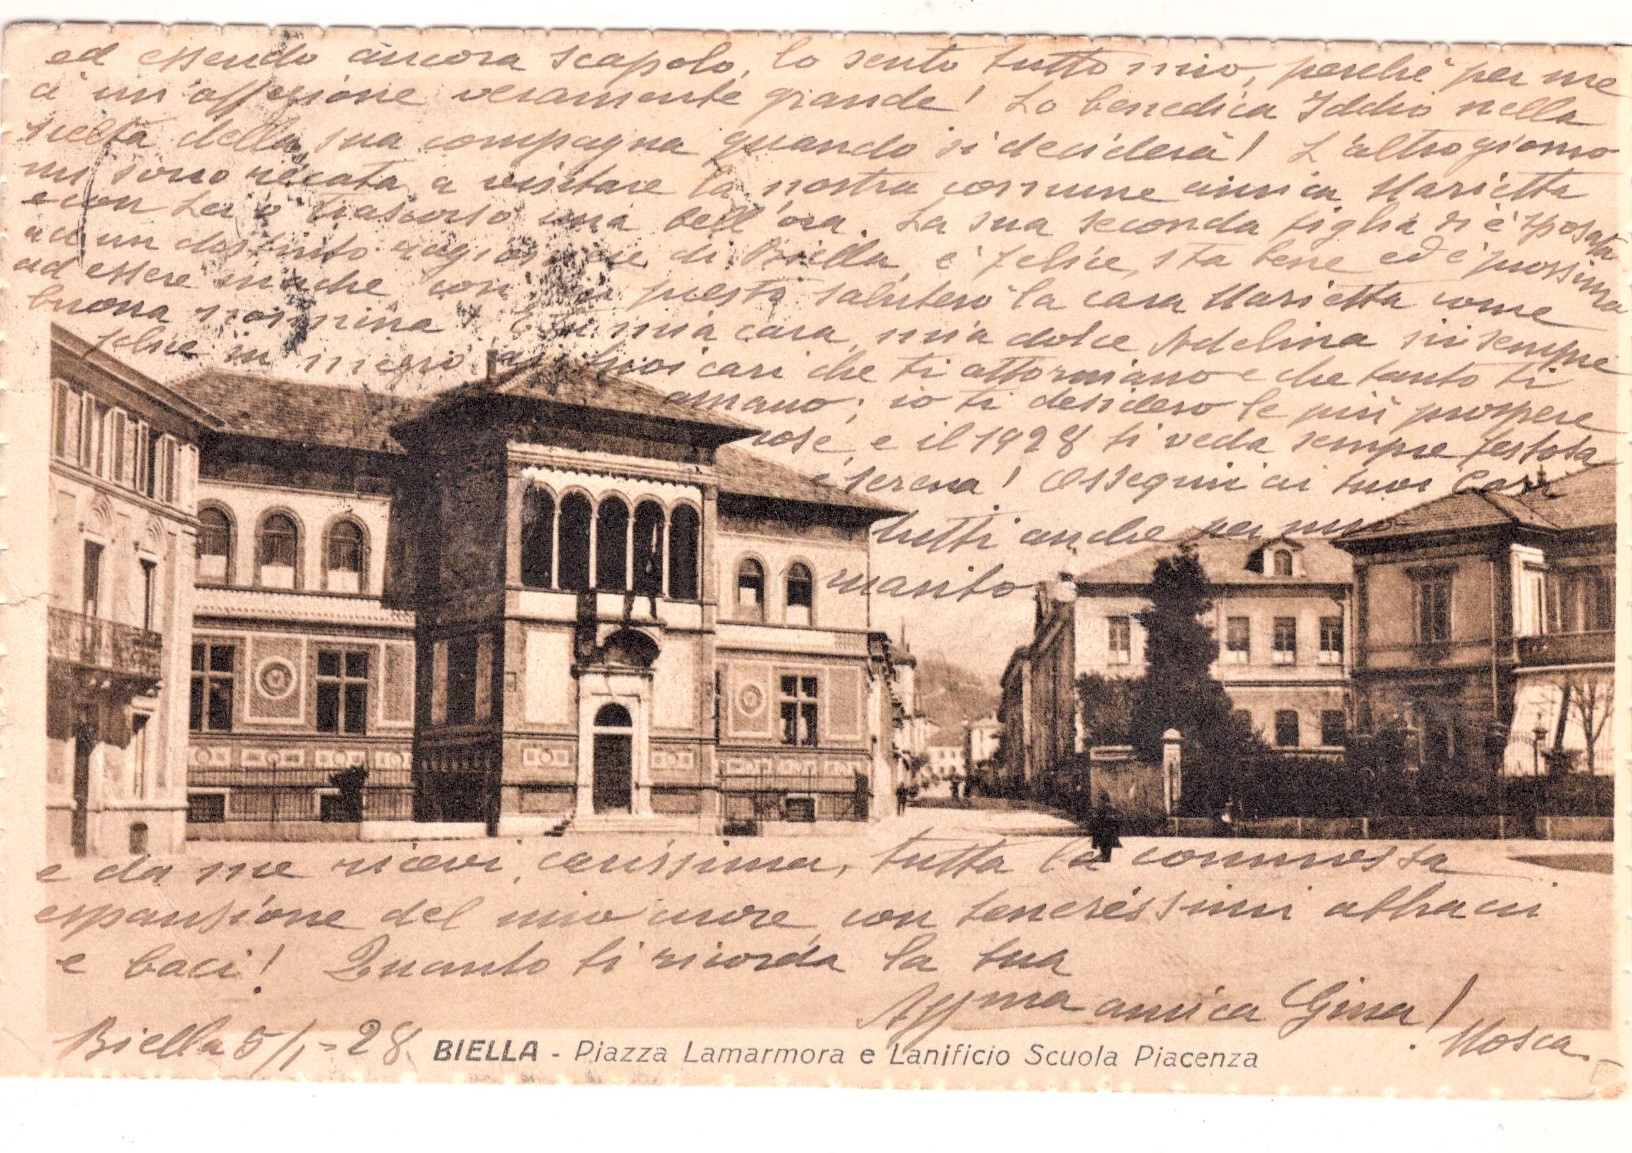 ed essendo ancora scapolo, lo sento tutto mio, perchè per me
à un'affezione veramente grande! Lo benedica Iddio nella
scelta della sua compagna quando si deciderà! L'altro giorno
mi sono recata a visitare la nostra comune amica Marietta
e con Lei ò trascorso una bell'ora. La sua seconda figlia si è sposata
ad un distinto ragioniere di Biella, è felice, sta bene ed è prossima
ad essere madre con questa saluterò la cara Marietta come
buona nonnina! E tu mia cara, mia dolce Adelina sii sempre
felice in mezzo ai tuoi cari che ti attorniano e che tanto ti
amano; io ti desidero le più prospere
cose, e il 1928 ti veda sempre festosa
e serena! Ossequi ai tuoi Cari
tutti anche per mio
marito
e da me ricevi, carissima, tutta la commossa
espansione del mio cuore, con tenerissimi abbracci
e baci! Quanto ti ricorda la tua
Affma amica Gina!
Mosca.
Biella 5/1-28
BIELLA - Piazza Lamarmora e Lanificio Scuola Piacenza